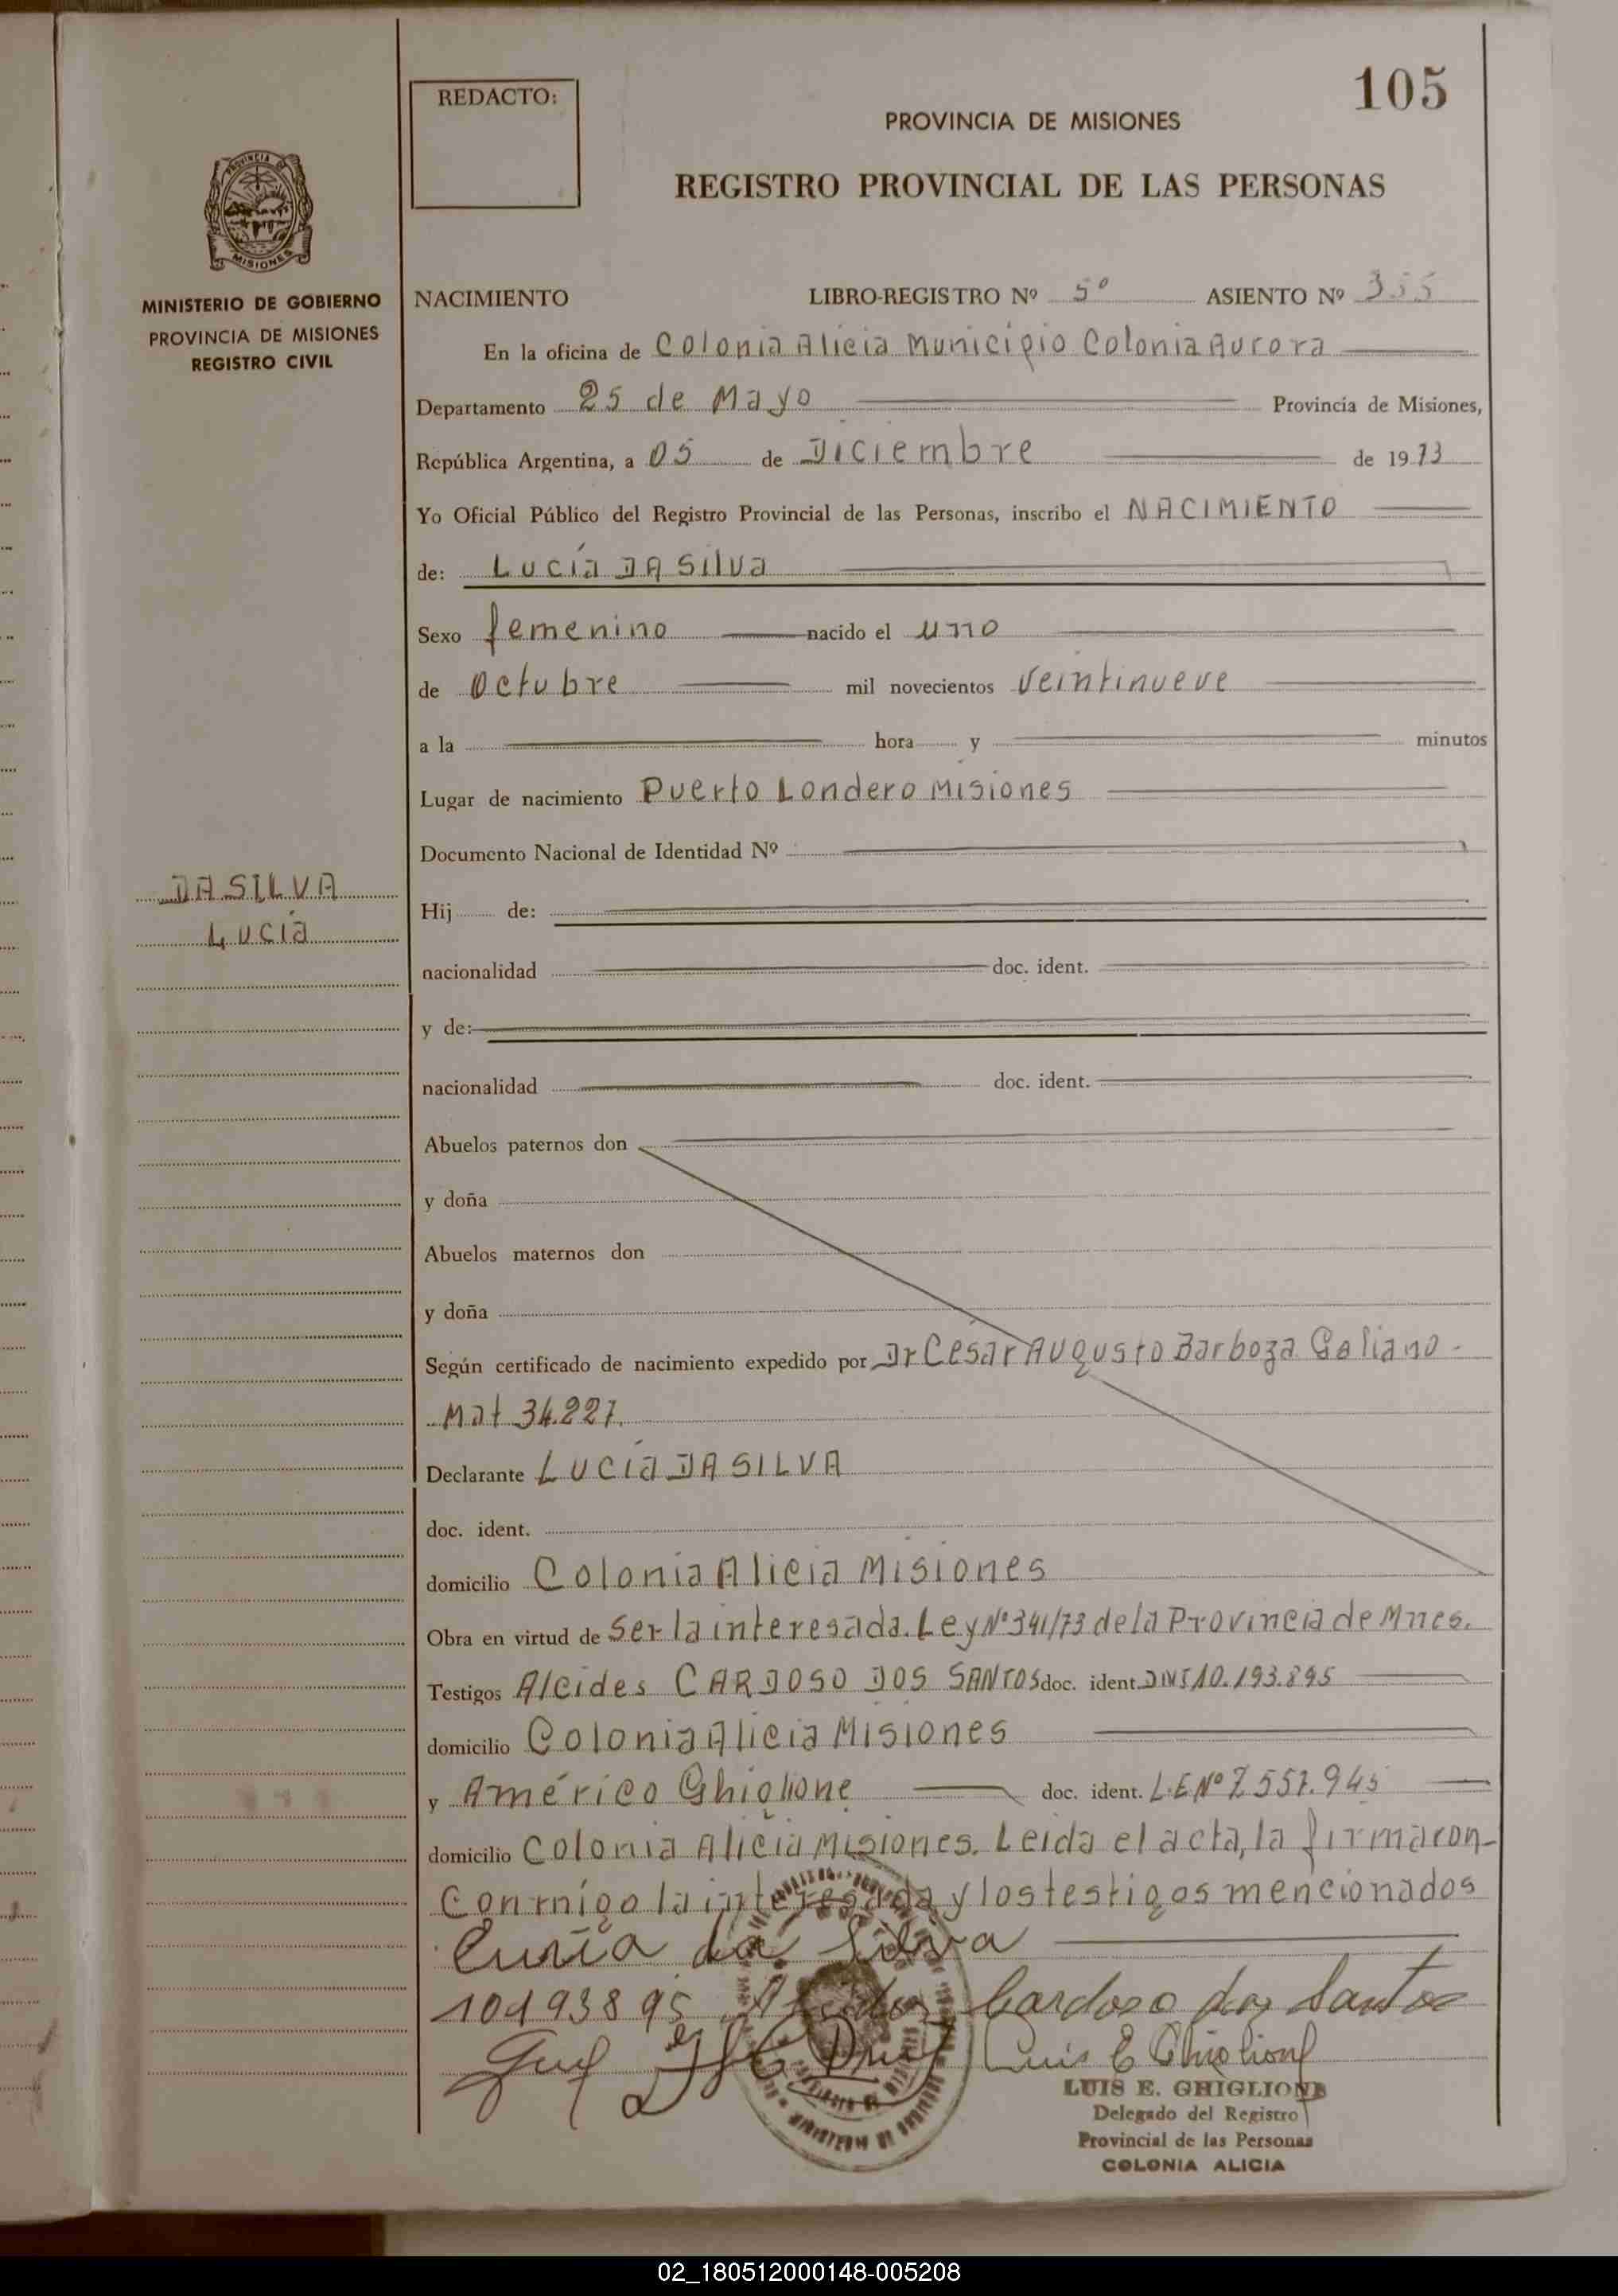 105
REDACTO:
PROVINCIA DE MISIONES
REGISTRO PROVINCIAL DE LAS PERSONAS
PROVINCIA DE
MISIONES
MINISTERIO DE GOBIERNO
PROVINCIA DE MISIONES
REGISTRO CIVIL
NACIMIENTO LIBRO-REGISTRO Nº 5º ASIENTO Nº 355
En la oficina de Colonia Alicia Municipio Colonia Aurora
Departamento 25 de Mayo Provincia de Misiones,
República Argentina, a 05 de Diciembre de 1973
Yo Oficial Público del Registro Provincial de las Personas, inscribo el NACIMIENTO
de: Lucía DA Silva
Sexo femenino nacido el uno
de Octubre mil novecientos veintinueve
a la hora y minutos
Lugar de nacimiento Puerto Londero Misiones
Documento Nacional de Identidad Nº
DA SILVA
Lucía
Hij de:
nacionalidad doc. ident.
y de:
nacionalidad doc. ident.
Abuelos paternos don
y doña
Abuelos maternos don
y doña
Según certificado de nacimiento expedido por Dr César Augusto Barboza Galiano-
Mat 34.227.
Declarante LUCía DA SILVA
doc. ident.
domicilio Colonia Alicia Misiones
Obra en virtud de ser la interesada. Ley Nº 341/73 de la Provincia de Mnes.
Testigos Alcides CARDOSO DOS SANTOS doc. ident. DNI 10.193.895
domicilio Colonia Alicia Misiones
y Américo Ghiglione doc. ident. L.E Nº 7.557.945
domicilio Colonia Alicia Misiones. Leida el acta, la firmaron-
Conmigo la interesada y los testigos mencionados
Lucía da Silva
10193895 Alcides Cardoso dos Santos
Luis E Ghiglione
LUIS E. GHIGLIONE
Delegado del Registro
Provincial de las Personas
COLONIA ALICIA
02_180512000148-005208